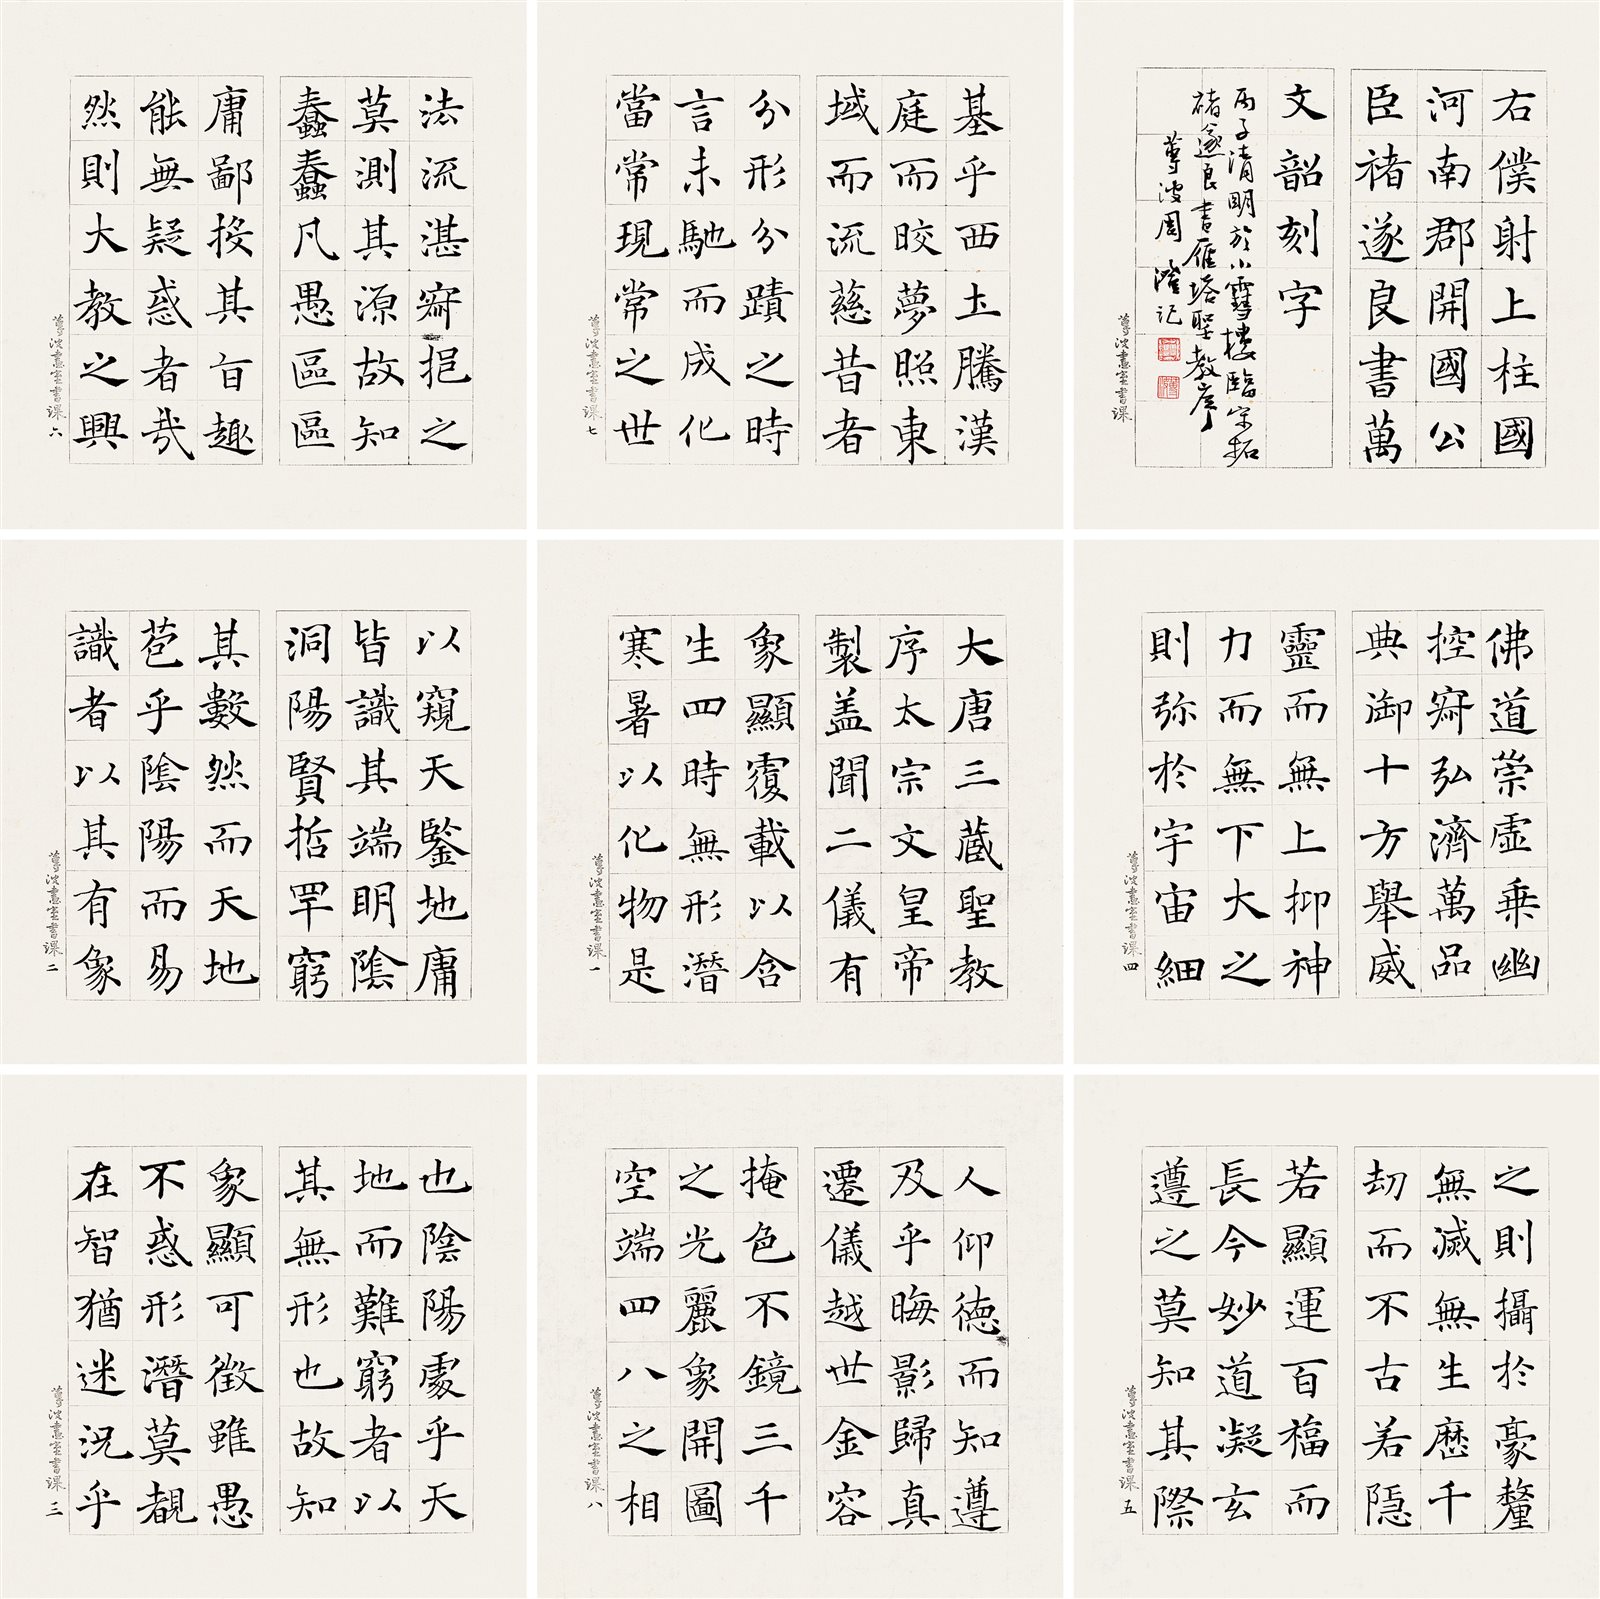 大唐三蔵聖教
序太宗文皇帝
製盖聞二儀有
象顯覆載以含
生四時無形潛
寒暑以化物是
蓴波畫室書課 一
以窺天鑒地庸
皆識其端明陰
洞陽賢哲罕窮
其數然而天地
苞乎陰陽而易
識者以其有象
蓴波畫室書課 二
也陰陽處乎天
地而難窮者以
其無形也故知
象顯可徵雖愚
不惑形潛莫覩
在智猶迷況乎
蓴波畫室書課 三
佛道崇虛乗幽
控寂弘濟萬品
典御十方舉威
靈而無上抑神
力而無下大之
則弥於宇宙細
蓴波畫室書課 四
之則攝於豪釐
無滅無生歷千
劫而不古若隱
若顯運百福而
長今妙道凝玄
遵之莫知其際
蓴波畫室書課 五
法流湛寂挹之
莫測其源故知
蠢蠢凡愚區區
庸鄙投其旨趣
能無疑惑者哉
然則大教之興
蓴波畫室書課 六
基乎西土騰漢
庭而皎夢照東
域而流慈昔者
分形分蹟之時
言未馳而成化
當常現常之世
蓴波畫室書課 七
人仰德而知遵
及乎晦影歸真
遷儀越世金容
掩色不鏡三千
之光麗象開圖
空端四八之相
蓴波畫室書課 八
右僕射上柱國
河南郡開國公
臣褚遂良書萬
文韶刻字
丙子清明於小雪樓臨宋拓
褚遂良書雁塔聖教序
蓴波周澄記
蓴波畫室書課